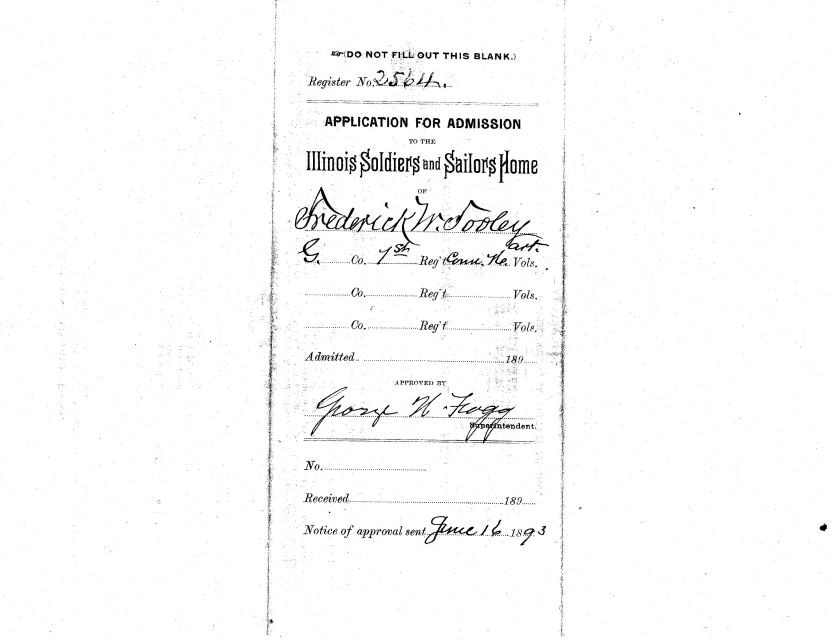 ☞(DO NOT FILL OUT THIS BLANK.)
Register No. 2564.
APPLICATION FOR ADMISSION
TO THE
Illinois Soldiers and Sailors Home
OF
Frederick W. Tooley
Art.
G. Co. 1st Reg't Conn. He. Vols.
Co. Reg't Vols.
Co. Reg't Vols.
Admitted 189
APPROVED BY
George W. Fogg
Superintendent.
No.
Received 189
Notice of approval sent June 16 1893